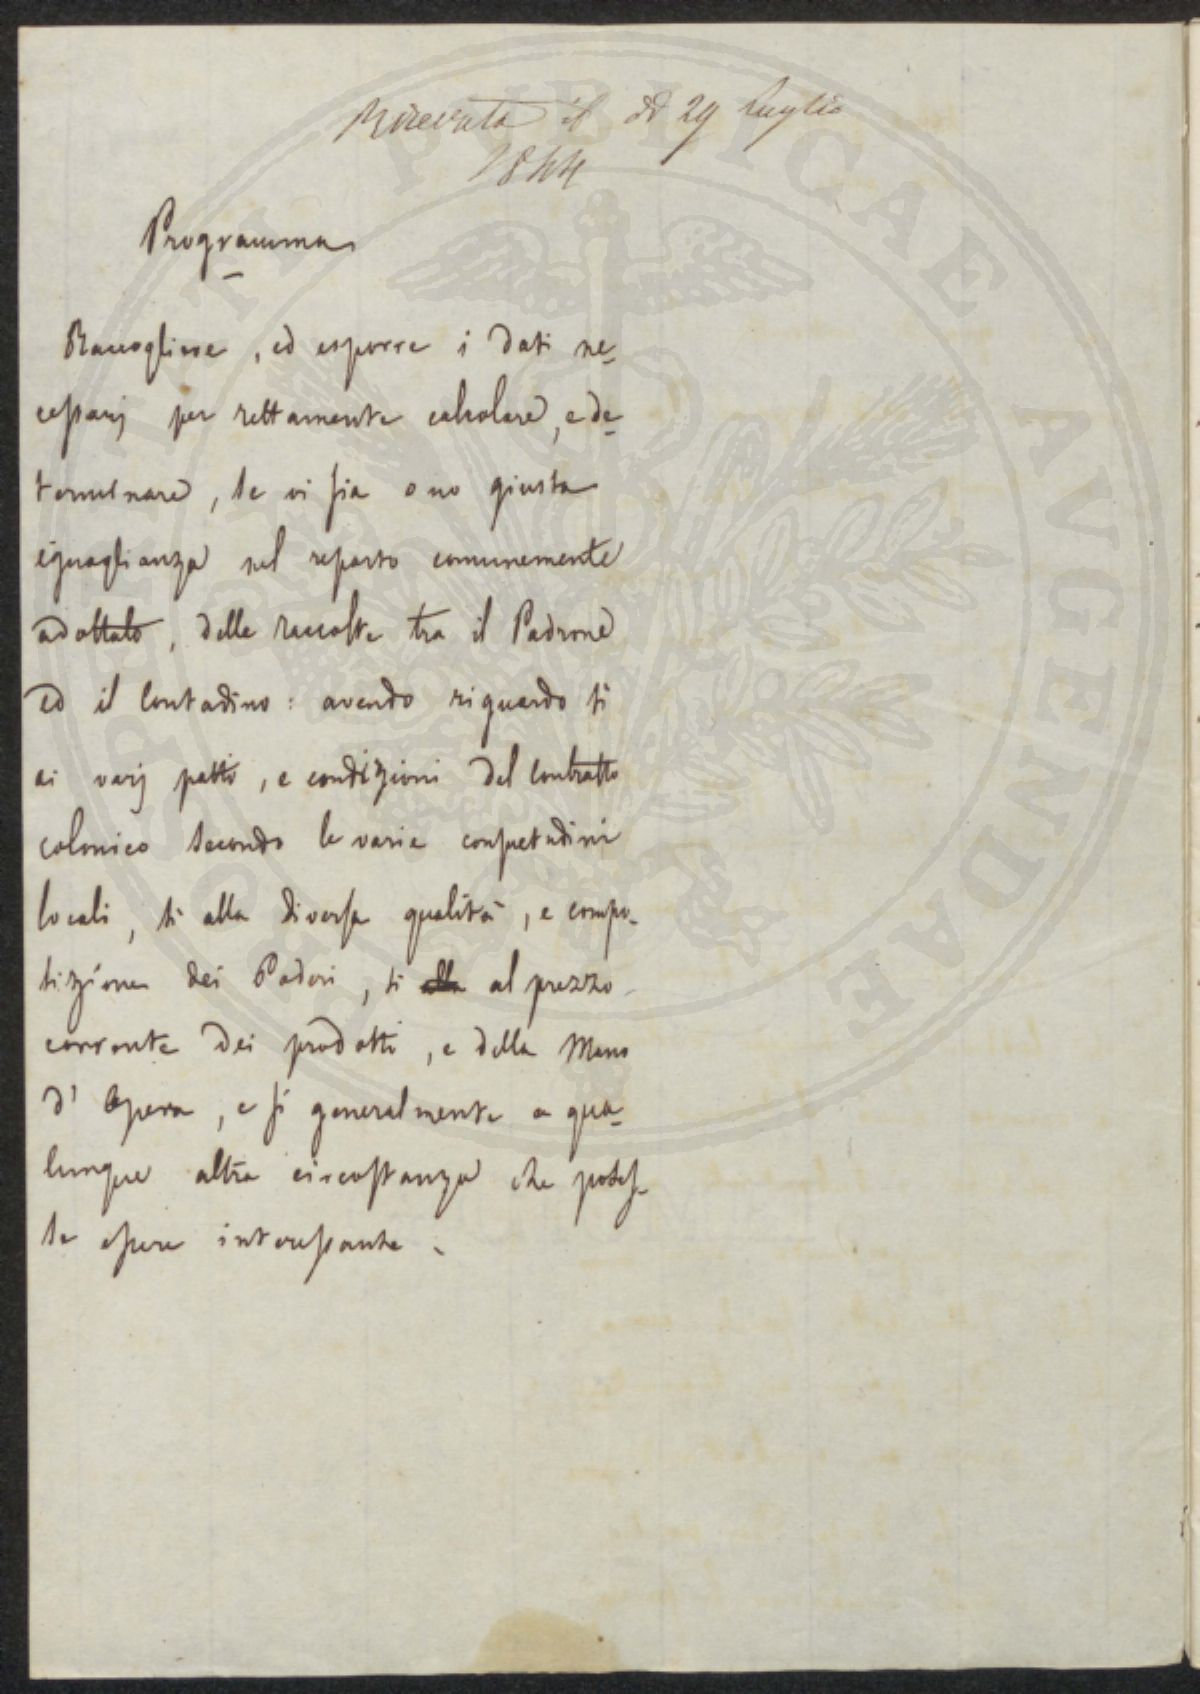 Ricevuta il dì 29 Luglio
1844
Programma
Raccogliere, ed esporre i dati ne-
cessarj per rettamente calcolare, e de-
terminare, se vi sia o no giusta
eguaglianza nel reparto comunemente
adottato, delle raccolte tra il Padrone
ed il Contadino: avendo riguardo si
ai varj patti, e condizioni del Contratto
colonico secondo le varie consuetudini
locali, si alla diversa qualità, e compo-
sizione dei Poderi, si al prezzo
corrente dei prodotti, e della Mano
d'Opera, e si generalmente a qua-
lunque altra circostanza che potes-
se essere interessante.
PROSPERITATI PUBLICAE AUGENDAE